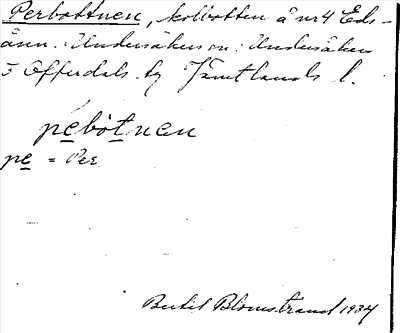 Perbottnen, kolbotten å nr 4 Eds-
änn. Undersåkers sn. Undersåkers
o Offerdals tg Jämtlands l.
pebòtnen
pe = Per
Bertil Blomstrand 1934